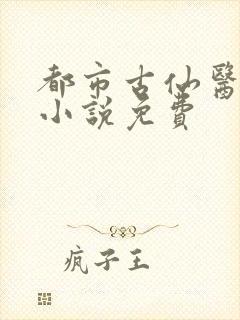 都市古仙醫
小說免費
疯子王